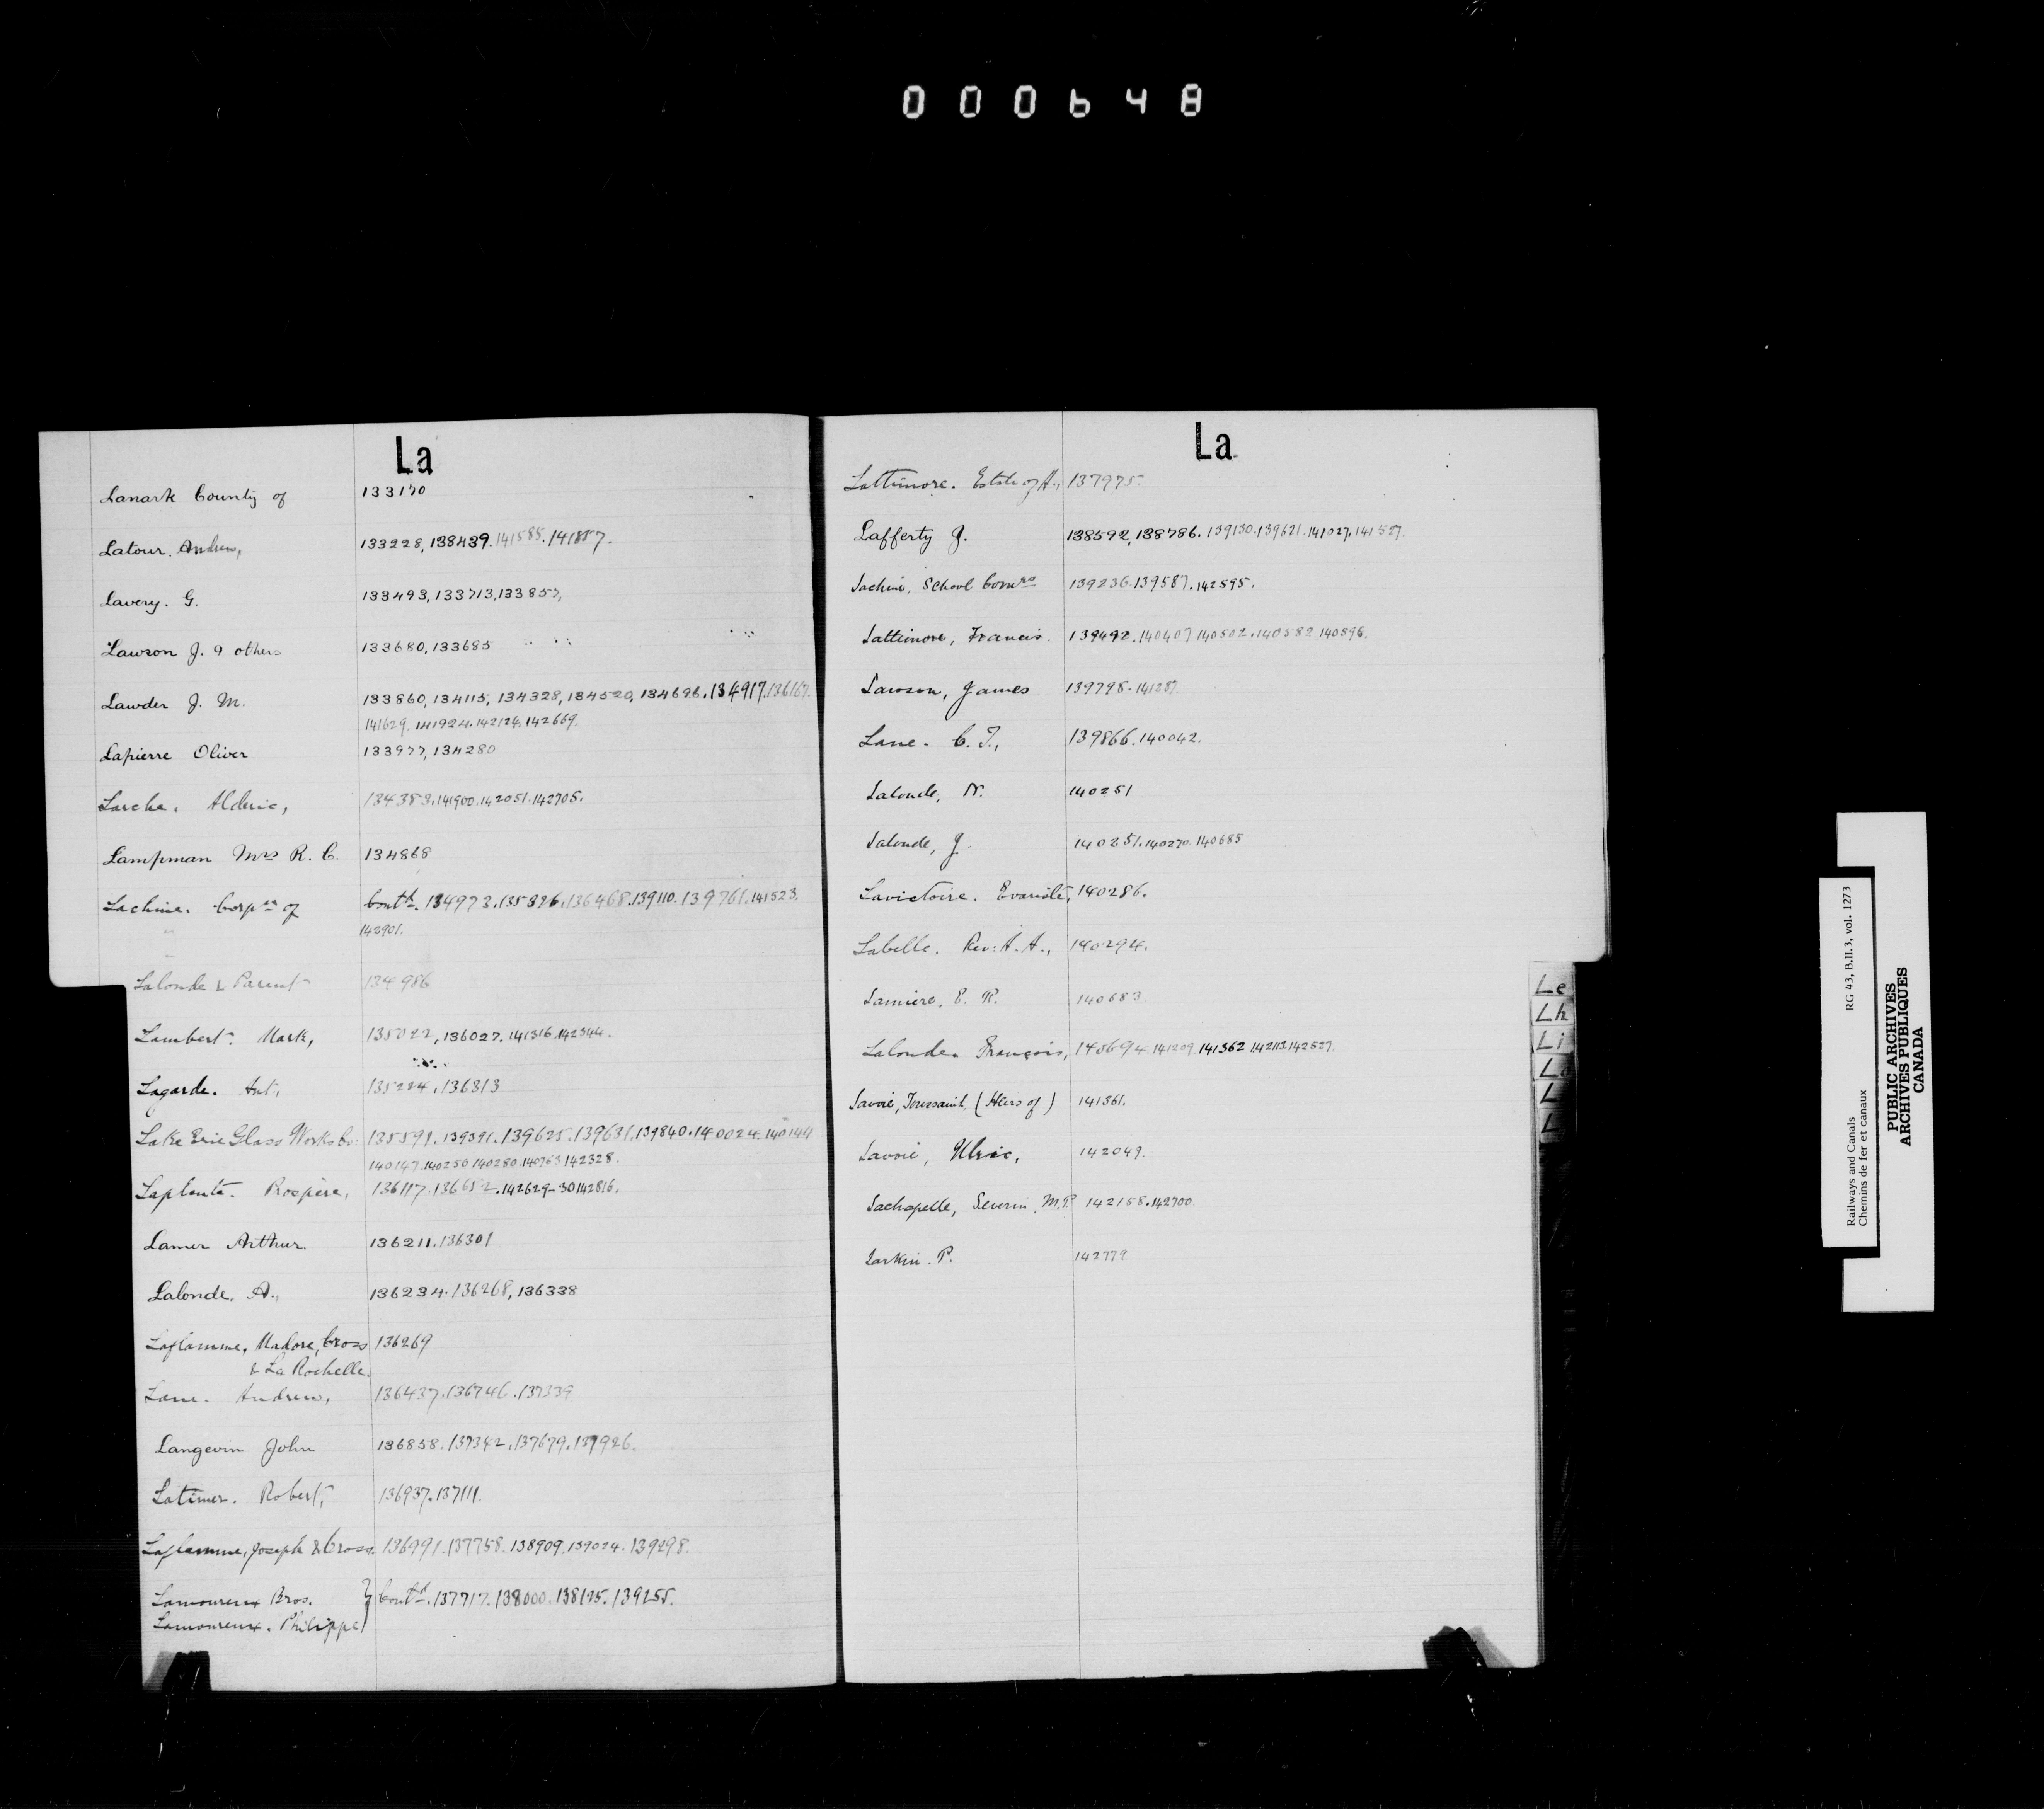 000648
La
Lanark County of 133170
Latour. Andrew, 133228, 138439. 141585. 141857.
Lavery. G. 133493, 133713, 133857,
Lawson J. & others 133680, 133685
Lawder J. M. 133860, 134115, 134328, 134520, 134696. 134917. 136167.
141629. 141924. 142124. 142669.
Lapierre Oliver 133977, 134280
Larche. Alderic, 134383. 141900. 142051. 142705.
Lampman Mrs R. C. 134868
Lachine. Corpn of Contd. 134973. 135826. 136468. 139110. 139761. 141523.
142901.
Lalonde & Parent 134986
Lambert. Mark, 135022, 136027. 141316. 142344.
Lagarde. Ant., 135284. 136313
Lake Erie Glass Works Co: 135591. 139391. 139625. 139631. 139840. 140024. 140144
140147. 140250 140280. 140763 142328.
Laplante. Prospère, 136117. 136652. 142629-30 142816.
Lamer Arthur. 136211. 136301
Lalonde, A., 136234. 136268, 136338
Laflamme, Madore, Cross 136269
& La Rochelle.
Lane. Andrew, 136437. 136746. 137339
Langevin John 136858. 137342. 137679. 137926.
Latimer. Robert, 136937. 137111.
Laflamme, Joseph & Cross. 136991. 137758. 138909. 139024. 139298.
Lamoureux Bros. } Contd. 137717. 138000. 138195. 139255.
Lamoureux. Philippe }
La
Lattimore. Estate of A., 137975.
Lafferty J. 138592, 138786. 139130. 139621. 141027. 141527.
Lachine, School Comrs 139236. 139587. 142595.
Lattimore, Francis. 139492. 140407 140502. 140582 140596.
Lawson, James 139798. 141287.
Lane. C. T., 139866. 140042.
Lalonde, N. 140251
Lalonde, J. 140251. 140270. 140685
Lavictoire. Evariste, 140286.
Labelle. Rev: A. A., 140294.
Lamiere, E. R. 140683
Lalonde. François, 140694. 141209. 141362 142112 142527.
Lavoie, Toussaint, (Heirs of) 141361.
Lavoie, Ulric, 142049.
Lachapelle, Severin, M.P. 142158. 142700.
Larkin. P. 142779
Le
Lh
Li
Lo
Railways and Canals RG 43, B.II.3, vol. 1273
Chemins de fer et canaux
PUBLIC ARCHIVES
ARCHIVES PUBLIQUES
CANADA